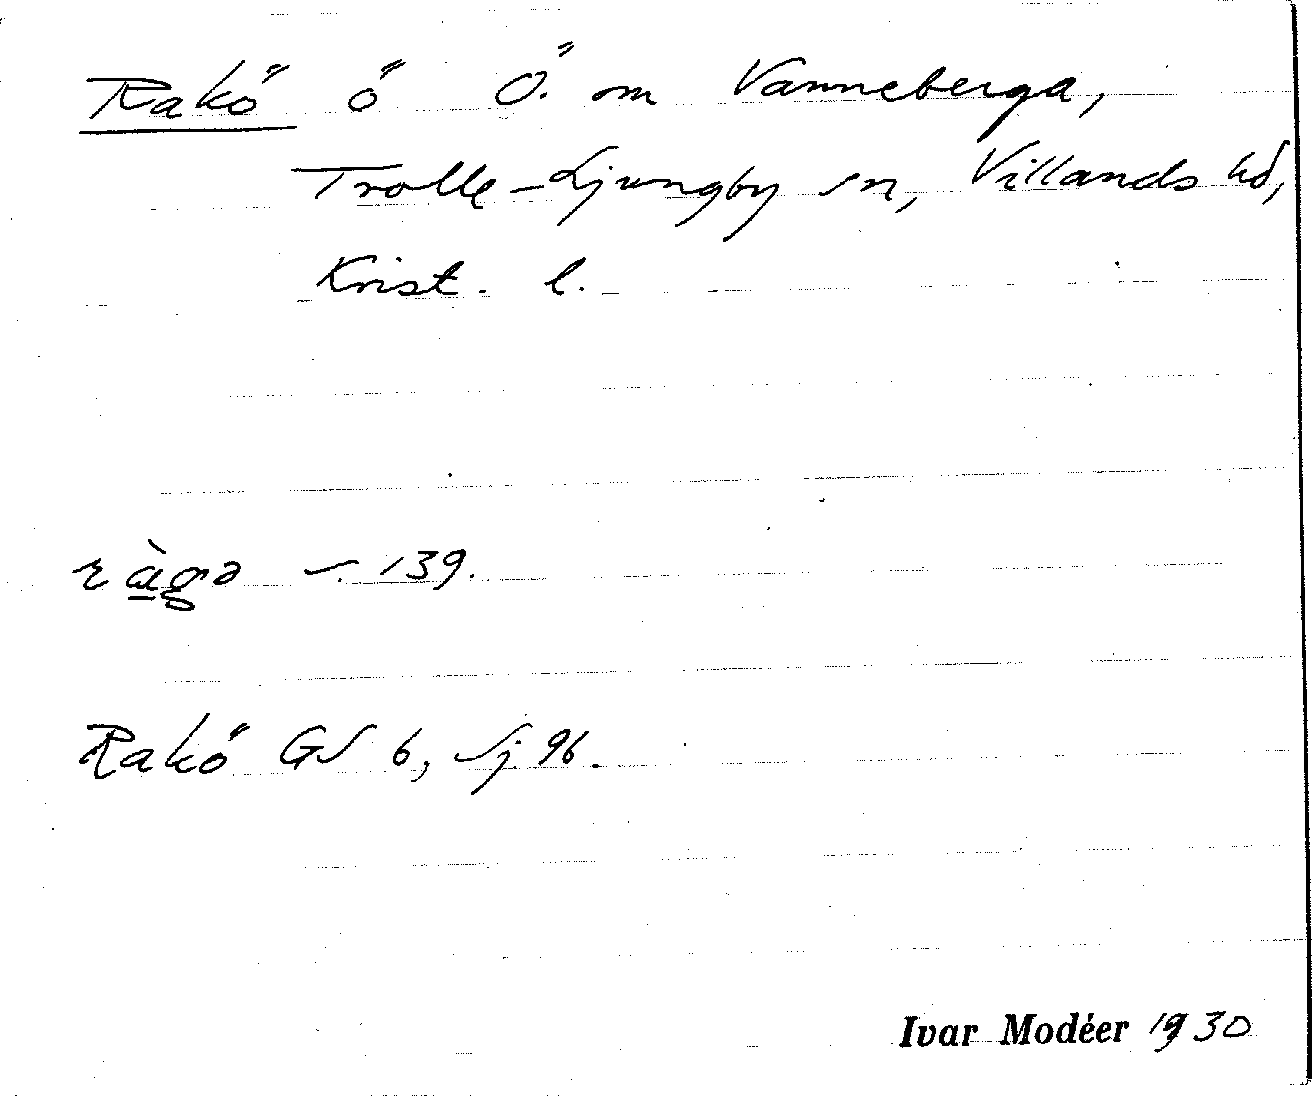 Rakö ö Ö. om Vanneberga,
Trolle-Ljungby sn, Villands hd,
Krist. l.
ràgə 139.
Rakö GS 6, Lj 96.
Ivar Modéer 1930